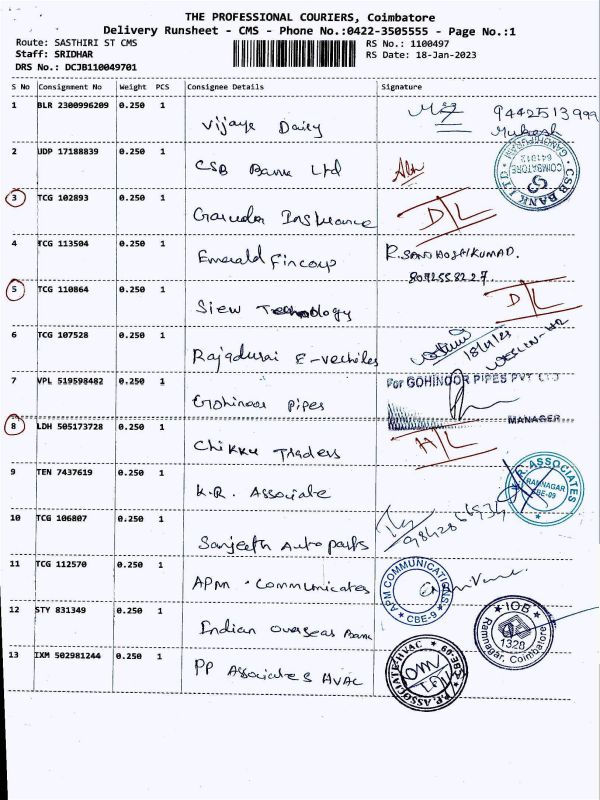 THE PROFESSIONAL COURIERS, Coimbatore
Delivery Runsheet - CMS - Phone No.:0422-3505555 - Page No.:1
Route: SASTHIRI ST CMS RS No.: 1100497
Staff: SRIDHAR RS Date: 18-Jan-2023
DRS No.: DCJB110049701
S No Consignment No Weight PCS Consignee Details Signature
1 BLR 2300996209 0.250 1 Vijaya Dairy 9442513999
Mukesh
2 UDP 17188839 0.250 1 CSB Bank Ltd
CSB BANK LTD
GANDHIPURAM
641012
COIMBATORE
3 TCG 102893 0.250 1 Insurance D/L
4 TCG 113504 0.250 1 Emerald Fincorp
5 TCG 110864 0.250 1 Siew Technology D/L
6 TCG 107528 0.250 1 Rajadurai E-vechiles
18/1/23
7 VPL 519598482 0.250 1 Gohinoor Pipes
For GOHINOOR PIPES PVT LTD
MANAGER
8 LDH 505173728 0.250 1 Chikku Traders H/L
9 TEN 7437619 0.250 1 K.R. Associate
R. ASSOCIATES
RAMNAGAR
CBE-09
10 TCG 106807 0.250 1 Sanjeeth Auto parts
11 TCG 112570 0.250 1 APM Communicates
APM COMMUNICATIONS
CBE-9
12 STY 831349 0.250 1 Indian Overseas Bank
IOB
1328
Ramnagar, Coimbatore
13 IXM 502981244 0.250 1 PP Associates HVAC
P.P. ASSOCIATE-HVAC
CBE-09